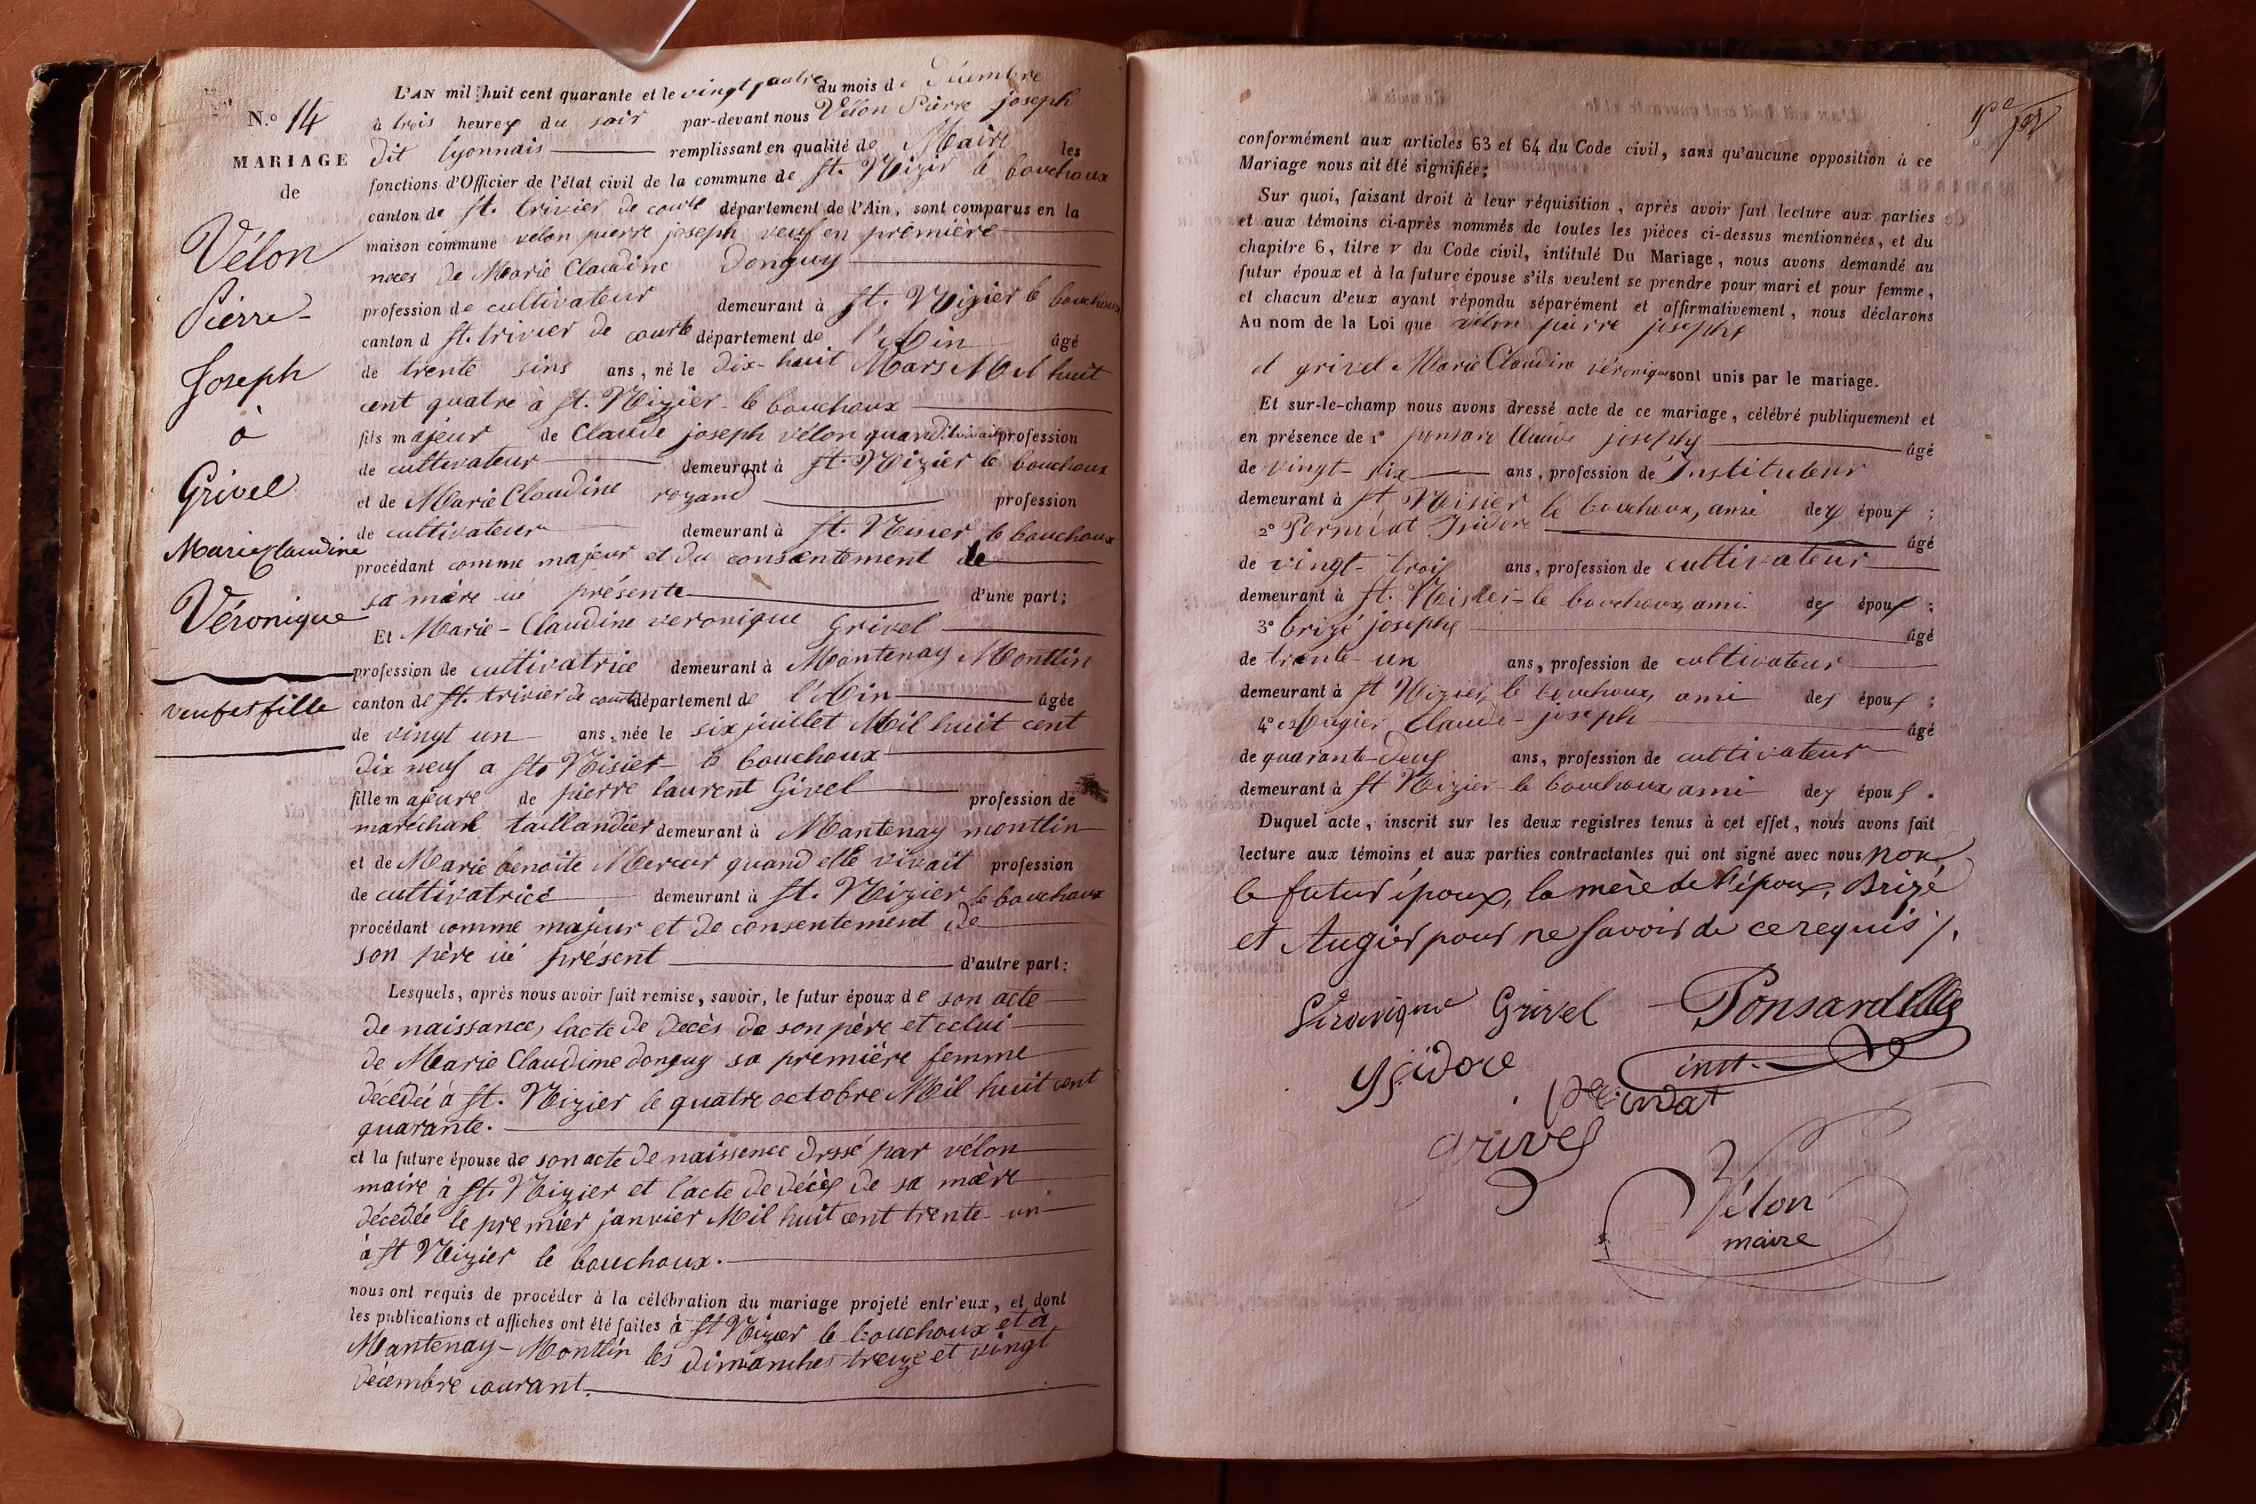 N.º 14
MARIAGE
de
Vélon
Pierre-
Joseph
à
Grivel
Marie Claudine
Véronique
veuf et fille
L'AN mil huit cent quarante et le vingt quatre du mois de Décembre
à trois heures du soir par-devant nous Vélon Pierre Joseph
dit lyonnais remplissant en qualité de Maire les
fonctions d'Officier de l'état civil de la commune de St. Nizier le bouchoux
canton de St. trivier de courte département de l'Ain, sont comparus en la
maison commune velon pierre joseph veuf en première
noces de Marie Claudine Donguy
profession de cultivateur demeurant à St. Nizier le bouchoux
canton d St. trivier de courte département de l'Ain âgé
de trente sins ans, né le dix-huit Mars Mil huit
cent quatre à St. Nizier le bouchoux
fils majeur de Claude joseph vélon quand il vivait profession
de cultivateur demeurant à St. Nizier le bouchoux
et de Marie Claudine royand profession
de cultivateur demeurant à St. Nisier le bouchoux
procédant comme majeur et du consentement de
sa mère ici présente d'une part;
Et Marie-Claudine veronique Grivel
profession de cultivatrice demeurant à Mantenay Montlin
canton de St. trivier de courte département de l'Ain âgée
de vingt un ans, née le six juillet Mil huit cent
dix neuf a St. Nisier le bouchoux
fille majeure de pierre laurent Givel profession de
maréchal taillandier demeurant à Mantenay montlin
et de Marie benoite Mercier quand elle vivait profession
de cultivatrice demeurant à St. Nizier le bouchoux
procédant comme majeur et de consentement de
son père ici présent d'autre part:
Lesquels, après nous avoir fait remise, savoir, le futur époux de son acte
de naissance, lacte de decès de son père et celui
de Marie Claudine donguy sa première femme
décédée à St. Nizier le quatre octobre Mil huit cent
quarante.
et la future épouse de son acte de naissence drssé par vélon
maire à St. Nizier et lacte de décès de sa mère
décédée le premier janvier Mil huit cent trente-un
à St Nizier le bouchoux.
nous ont requis de procéder à la célébration du mariage projeté entr'eux, et dont
les publications et affiches ont été faites à St Nizier le bouchoux et à
Mantenay-Montlin les dimanches treize et vingt
décembre courant.
conformément aux articles 63 et 64 du Code civil, sans qu'aucune opposition à ce
Mariage nous ait été signifiée;
Sur quoi, faisant droit à leur réquisition, après avoir fait lecture aux parties
et aux témoins ci-après nommés de toutes les pièces ci-dessus mentionnées, et du
chapitre 6, titre v du Code civil, intitulé Du Mariage, nous avons demandé au
futur époux et à la future épouse s'ils veulent se prendre pour mari et pour femme,
et chacun d'eux ayant répondu séparément et affirmativement, nous déclarons
Au nom de la Loi que vélon pierre joseph
et grivel Marie Claudine véronique sont unis par le mariage.
Et sur-le-champ nous avons dressé acte de ce mariage, célébré publiquement et
en présence de 1º ponsard Claude joseph âgé
de vingt-six ans, profession de Instituteur
demeurant à St Nisier le bouchoux, ami des époux;
2º Pernodat Isidore âgé
de vingt-trois ans, profession de cultivateur
demeurant à St. Nisier-le bouchoux, ami des époux;
3º brizé joseph âgé
de trente-un ans, profession de cultivateur
demeurant à St Nizier le bouchoux, ami des époux;
4º Augier Claude-joseph âgé
de quarante-deux ans, profession de cultivateur
demeurant à St Nizier le bouchoux ami des époux.
Duquel acte, inscrit sur les deux registres tenus à cet effet, nous avons fait
lecture aux témoins et aux parties contractantes qui ont signé avec nous non
le futur époux, la mère de l'époux, Brizé
et Augier pour ne savoir de ce requis /.
Véronique Grivel Ponsard
inst.
Isidore
grivel
Vélon
maire